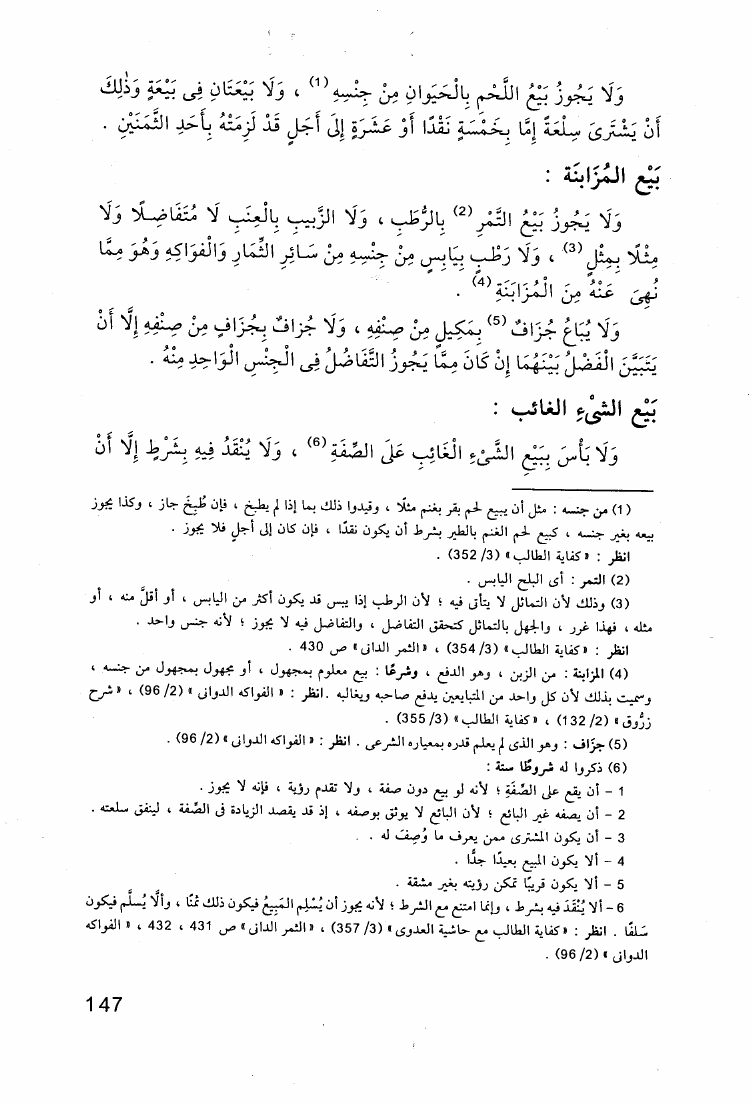 وَلَا يَجُوزُ بَيْعُ اللَّحْمِ بِالْحَيَوانِ مِنْ جِنْسِهِ (1) ، وَلَا بَيْعَتَانِ فِى بَيْعَةٍ وَذٰلِكَ
أَنْ يَشْتَرِىَ سِلْعَةً إِمَّا بِخَمْسَةٍ نَقْدًا أَوْ عَشَرَةٍ إِلَى أَجَلٍ قَدْ لَزِمَتْهُ بِأَحَدِ الثَّمَنَيْنِ .
بَيْع المُزَابنَة :
وَلَا يَجُوزُ بَيْعُ التَّمْرِ (2) بِالرُّطَبِ ، وَلَا الزَّبِيبِ بِالْعِنَبِ لَا مُتَفَاضِلًا وَلَا
مِثْلًا بِمِثْلٍ (3) ، وَلَا رَطْبٍ بِيَابِسٍ مِنْ جِنْسِهِ مِنْ سَائِرِ الثِّمَارِ وَالْفَوَاكِهِ وَهُوَ مِمَّا
نُهِىَ عَنْهُ مِنَ الْمُزَابَنَةِ (4) .
وَلَا يُبَاعُ جُزَافٌ (5) بِمَكِيلٍ مِنْ صِنْفِهِ ، وَلَا جُزافٌ بِجُزَافٍ مِنْ صِنْفِهِ إِلَّا أَنْ
يَتَبَيَّنَ الْفَضْلُ بَيْنَهُمَا إِنْ كَانَ مِمَّا يَجُوزُ التَّفَاضُلُ فِى الْجِنْسِ الْوَاحِدِ مِنْهُ .
بَيْع الشىْءِ الغائب :
وَلَا بَأْسَ بِبَيْعِ الشَّىْءِ الْغَائِبِ عَلَى الصِّفَةِ (6) ، وَلَا يُنْقَدُ فِيهِ بِشَرْطٍ إِلَّا أَنْ
(1) من جنسه : مثل أن يبيع لحم بقر بغنم مثلًا ، وقيدوا ذلك بما إذا لم يطبخ ، فإن طُبِخَ جاز ، وكذا يجوز
بيعه بغير جنسه ، كبيع لحم الغنم بالطير بشرط أن يكون نقدًا ، فإن كان إلى أجلٍ فلا يجوز .
انظر : « كفاية الطالب » (3/ 352) .
(2) التمر : أى البلح اليابس .
(3) وذلك لأن التماثل لا يتأتى فيه ؛ لأن الرطب إذا يبس قد يكون أكثر من اليابس ، أو أقلّ منه ، أو
مثله ، فهذا غرر ، والجهل بالتماثل كتحقق التفاضل ، والتفاضل فيه لا يجوز ؛ لأنه جنس واحد .
انظر : « كفاية الطالب » (3/ 354) ، « الثمر الدانى » ص 430 .
(4) المزابنة : من الزبن ، وهو الدفع ، وشرعًا : بيع معلوم بمجهول ، أو مجهول بمجهول من جنسه ،
وسميت بذلك لأن كل واحد من المتبايعين يدفع صاحبه ويغالبه . انظر : « الفواكه الدوانى » (2/ 96) ، « شرح
زرُّوق » (2/ 132) ، « كفاية الطالب » (3/ 355) .
(5) جزاف : وهو الذى لم يعلم قدره بمعياره الشرعى . انظر : « الفواكه الدوانى » (2/ 96) .
(6) ذكروا له شروطًا ستة :
1 – أن يقع على الصِّفَةِ ؛ لأنه لو بيع دون صفة ، ولا تقدم رؤية ، فإنه لا يجوز .
2 – أن يصفه غير البائع ؛ لأن البائع لا يوثق بوصفه ، إذ قد يقصد الزيادة فى الصِّفة ، لينفق سلعته .
3 – أن يكون المشترى ممن يعرف ما وُصِفَ له .
4 – ألا يكون المبيع بعيدًا جدًّا .
5 – ألا يكون قريبًا تمكن رؤيته بغير مشقة .
6 – ألا يُنْقَدَ فيه بشرط ، وإنما امتنع مع الشرط ؛ لأنه يجوز أن يُسْلِمَ المَبِيعُ فيكون ذلك ثمنًا ، وألَّا يُسلَّم فيكون
سَلفًا . انظر : « كفاية الطالب مع حاشية العدوى » (3/ 357) ، « الثمر الدانى » ص 431 ، 432 ، « الفواكه
الدوانى » (2/ 96) .
147